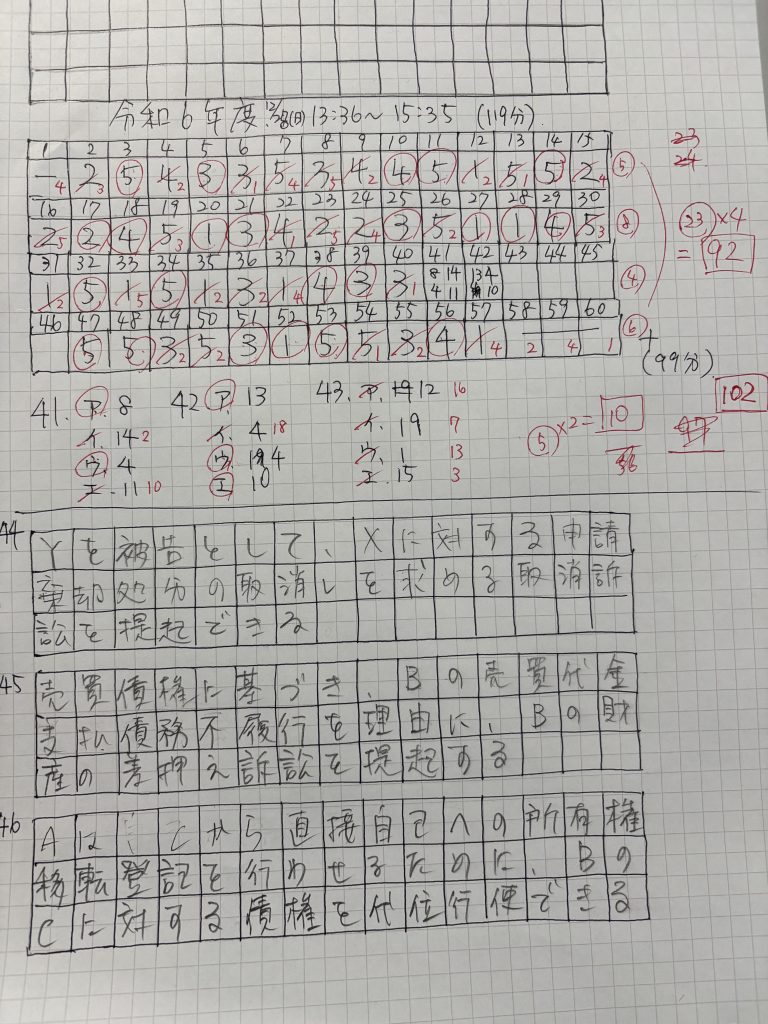 令和6年度 12/28(日) 13:36〜15:35 (119分)
1 2 3 4 5 6 7 8 9 10 11 12 13 14 15
4 2 3 5 4 2 3 3 1 5 4 3 5 4 2 4 5 1 2 5 1 5 2 4 ⑤
23
24
16 17 18 19 20 21 22 23 24 25 26 27 28 29 30
2 5 2 4 5 3 1 3 4 1 2 5 2 4 3 5 2 1 1 4 5 3 ⑧
㉓×4
=92
31 32 33 34 35 36 37 38 39 40 41 42 43 44 45
1 2 5 1 5 5 1 2 3 2 1 4 4 3 3 1 8 14 4 11 13 4 10 ④
46 47 48 49 50 51 52 53 54 55 56 57 58 59 60
5 5 3 2 5 2 3 1 5 5 1 3 2 4 1 4 2 4 1 ⑥
+
(99分)
41. ア. 8 42 ア. 13 43. ア. 12 16
102
イ. 14 2 イ. 4 18 イ. 19 7
⑤×2=10
ウ. 4 ウ. 4 ウ. 1 13
エ. 11 10 エ 10 エ. 15 3
44
Yを被告として、Xに対する申請
棄却処分の取消しを求める取消訴
訟を提起できる
45
売買債権に基づき、Bの売買代金
支払債務不履行を理由に、Bの財
産の差押え訴訟を提起する
46
Aは、Cから直接自己への所有権
移転登記を行わせるために、Bの
Cに対する債権を代位行使できる